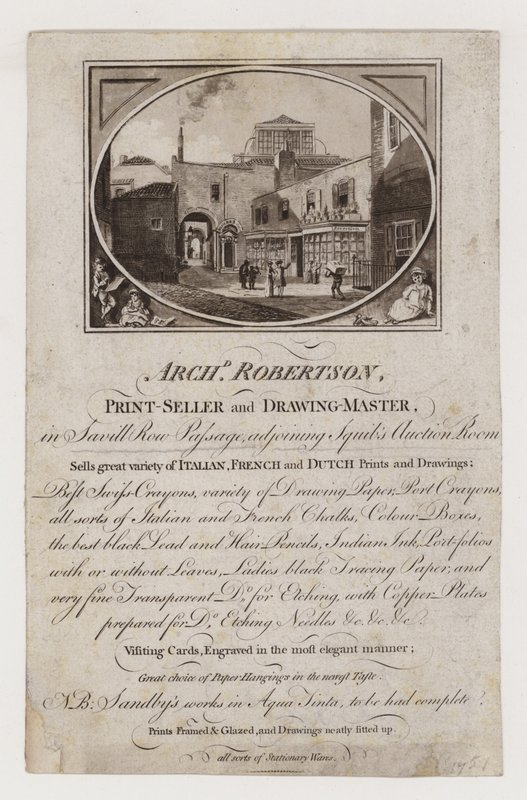 ARCH.D ROBERTSON,
PRINT-SELLER and DRAWING-MASTER,
in Savill Row Paſsage, adjoining Squib's Auction Room
Sells great variety of ITALIAN, FRENCH and DUTCH Prints and Drawings;
Beſt Swiſs Crayons, variety of Drawing Paper, Port Crayons,
all sorts of Italian and French Chalks, Colour Boxes,
the best black Lead and Hair Pencils, Indian Ink, Port-folios
with or without Leaves, Ladies black Tracing Paper, and
very fine Transparent D.o for Etching, with Copper Plates
prepared for D.o Etching Needles &c. &c. &c.
Viſiting Cards, Engraved in the moſt elegant manner;
Great choice of Paper Hangings in the neweſt Taſte.
N.B: Sandby's works in Aqua Tinta, to be had complete.
Prints Framed & Glazed, and Drawings neatly fitted up.
all sorts of Stationary Wares.